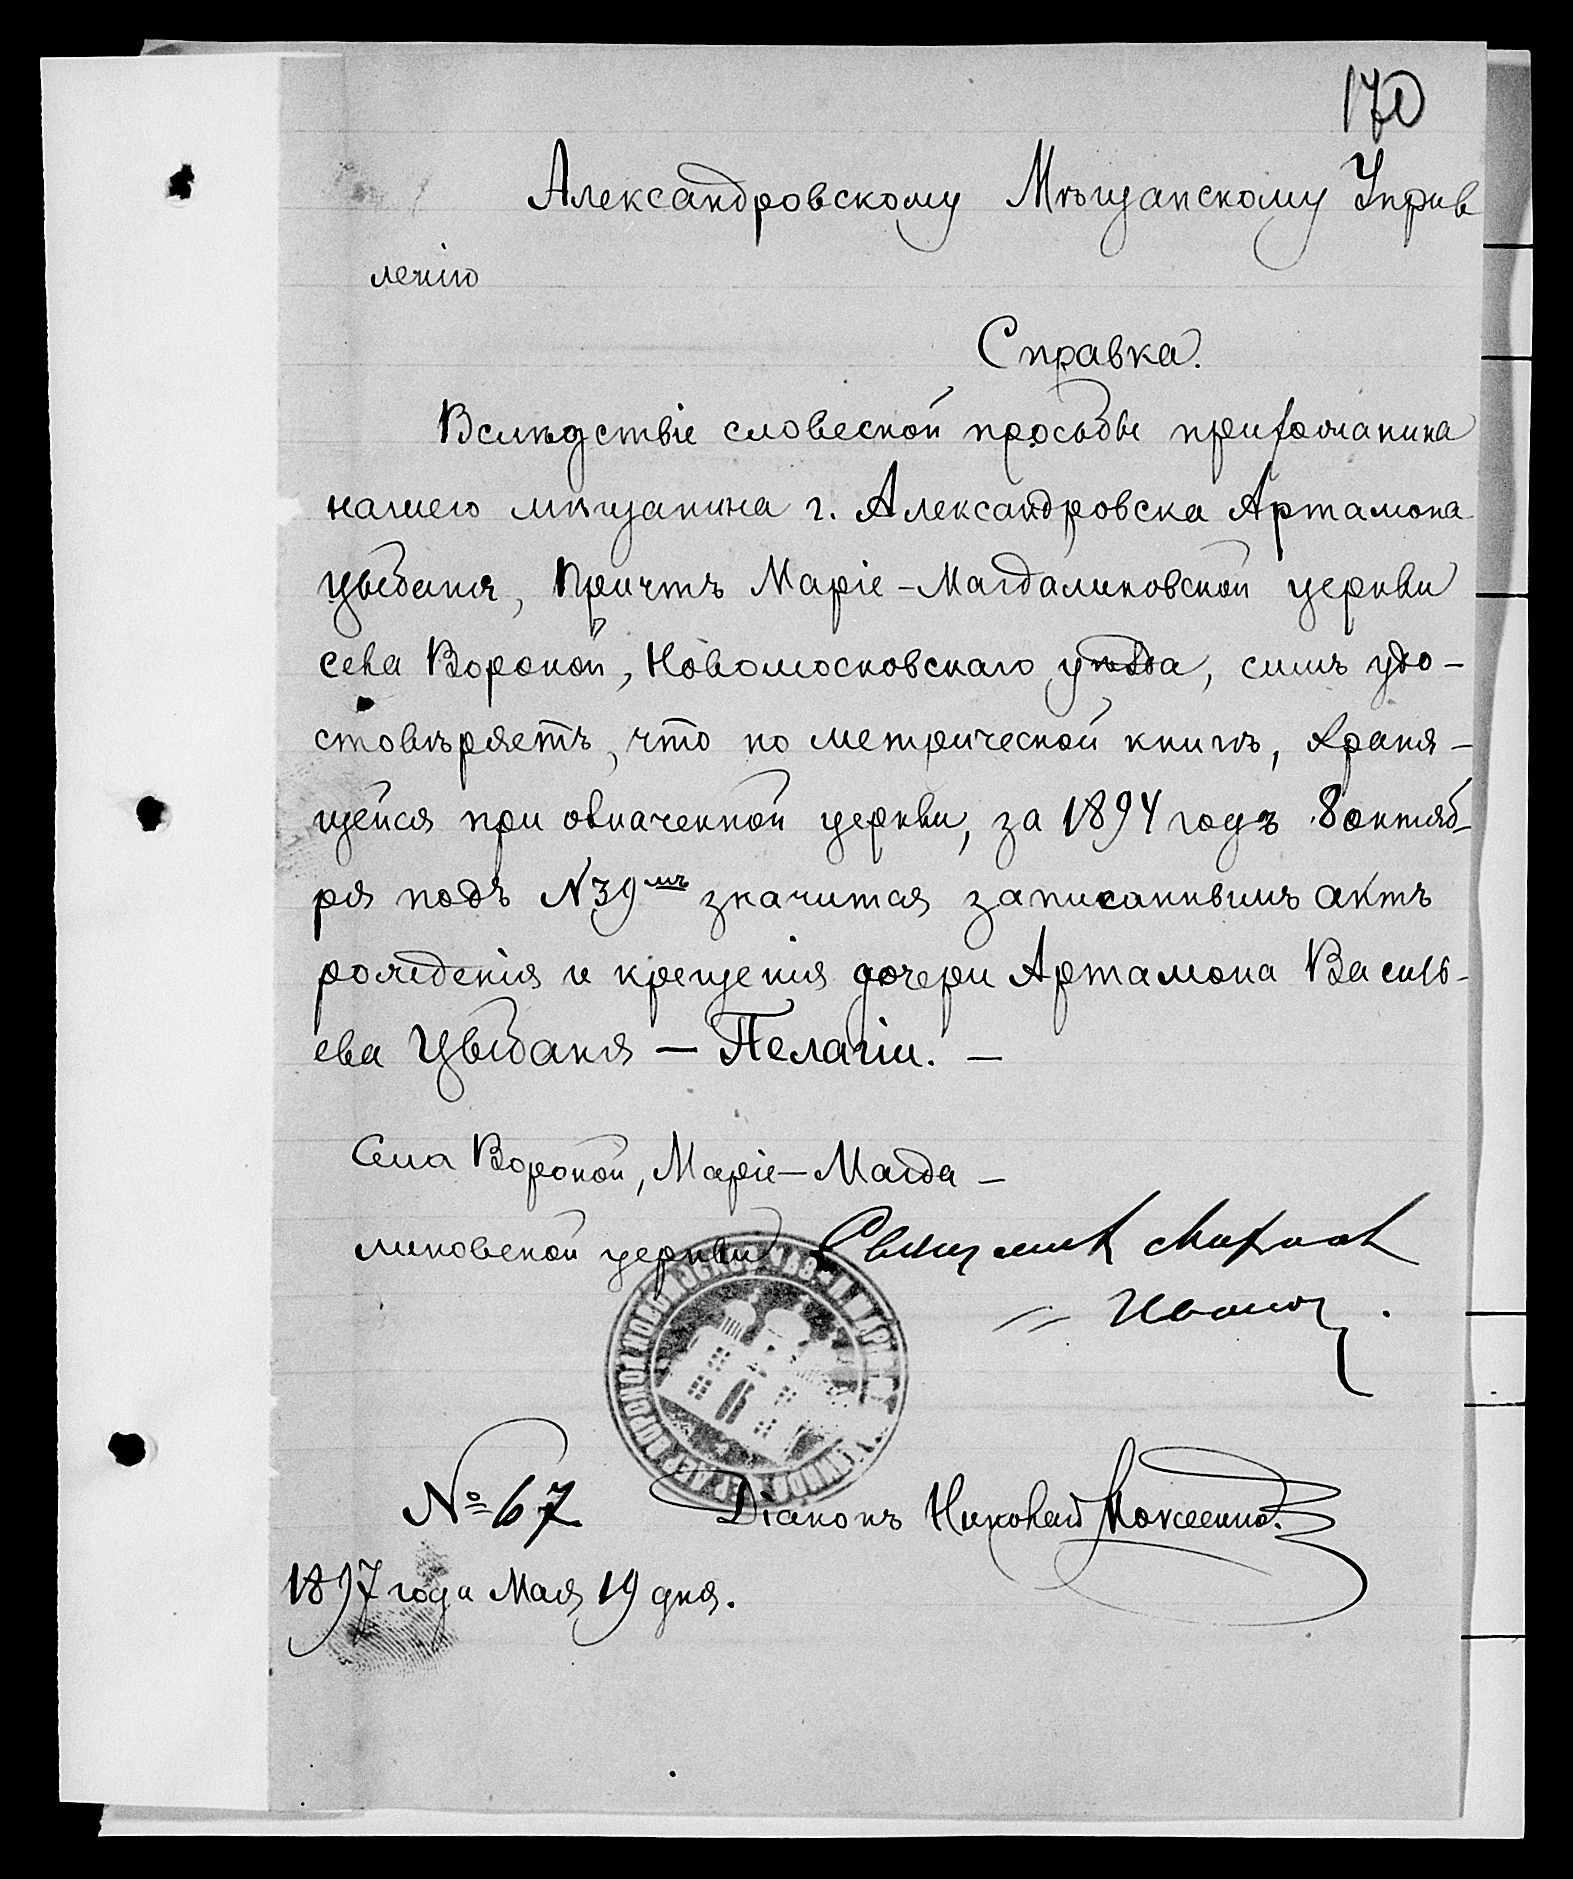 170
Александровскому Мѣщанскому Управ
ленію
Справка.
Вслѣдствіе словесной просьбы прихожанина
нашего мѣщанина г. Александровска Артамона
Цыбаня, Причтъ Маріе-Магдалиновской церкви
села Вороной, Новомосковскаго уѣзда, симъ удо-
стовѣряетъ, что по метрической книгѣ, храня-
щейся при означенной церкви, за 1894 годъ 8 октяб-
ря подъ №39мъ значится записаннымъ актъ
рожденія и крещенія дочери Артамона Василь-
ева Цыбаня — Пелагіи. —
Села Вороной, Маріе-Магда-
линовской церкви Священникъ
Діаконъ Николай
№ 67
1897 года Мая 19 дня.